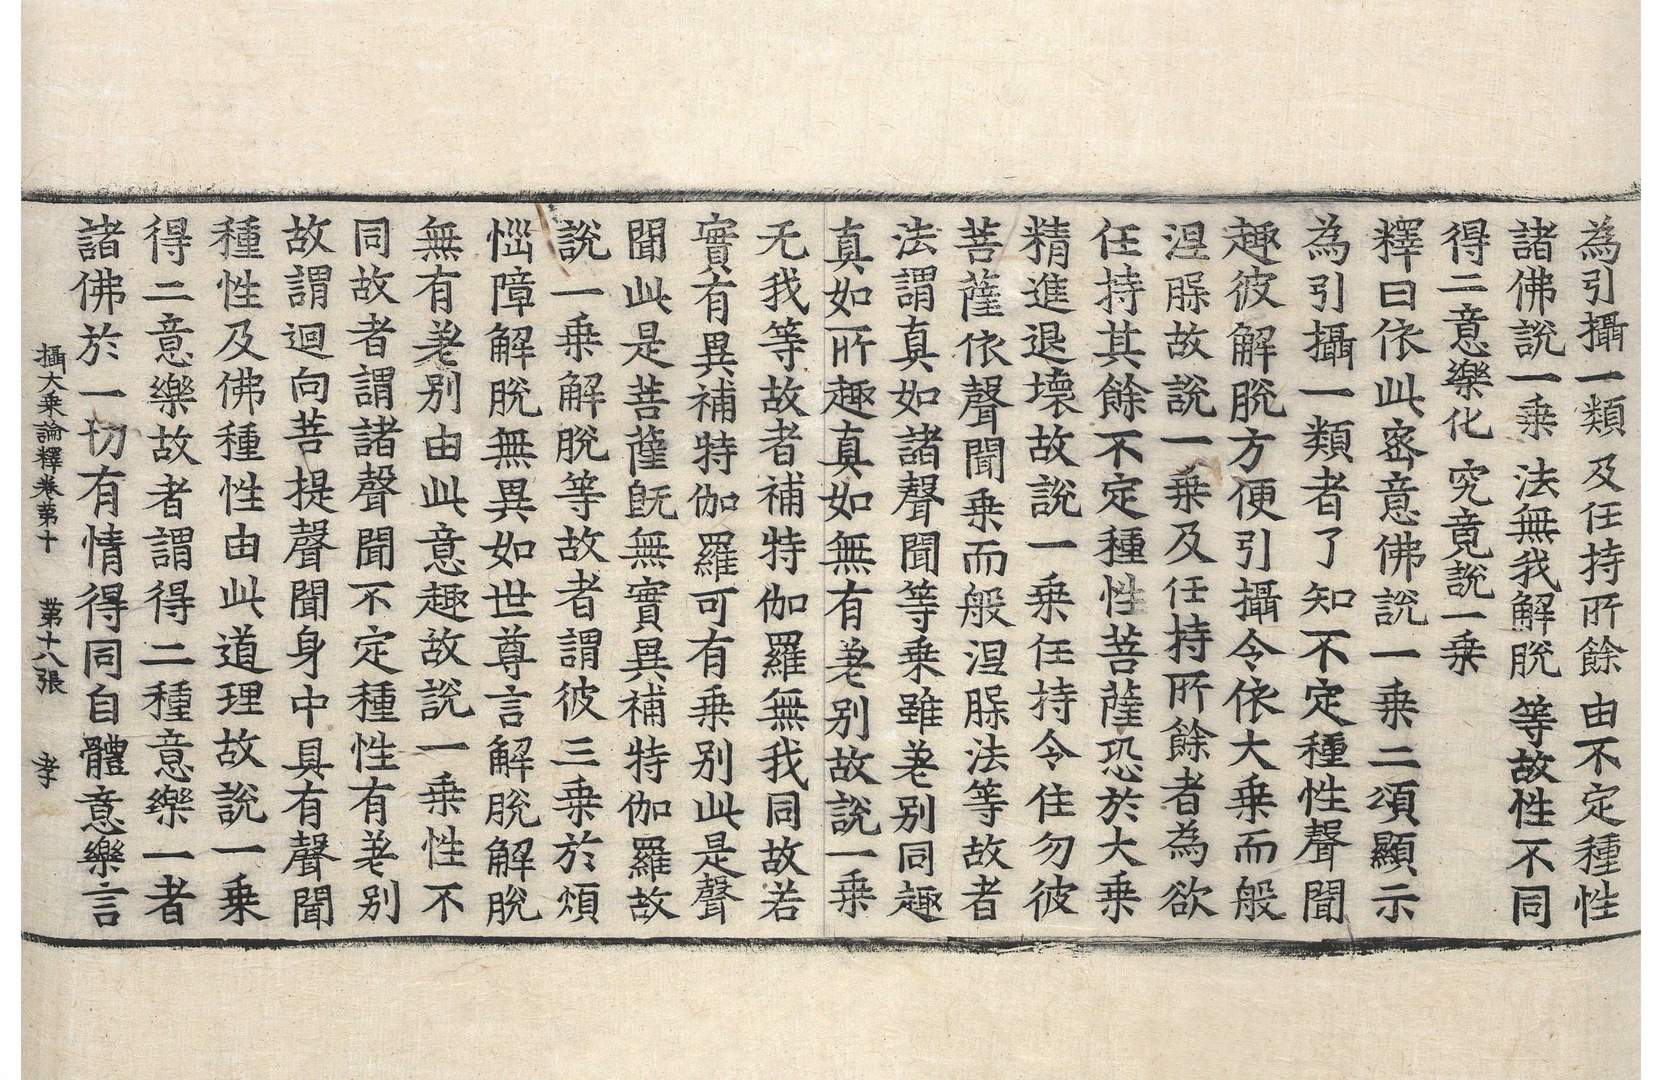 為引攝一類 及任持所餘 由不定種性
諸佛說一乘 法無我解脫 等故性不同
得二意樂化 究竟說一乘
釋曰依此密意佛說一乘二頌顯示
為引攝一類者了知不定種性聲聞
趣彼解脫方便引攝令依大乘而般
涅槃故說一乘及任持所餘者為欲
任持其餘不定種性菩薩恐於大乘
精進退壞故說一乘任持令住勿彼
菩薩依聲聞乘而般涅槃法等故者
法謂真如諸聲聞等乘雖差別同趣
真如所趣真如無有差別故說一乘
无我等故者補特伽羅無我同故若
實有異補特伽羅可有乘別此是聲
聞此是菩薩旣無實異補特伽羅故
說一乘解脫等故者謂彼三乘於煩
惱障解脫無異如世尊言解脫解脫
無有差別由此意趣故說一乘性不
同故者謂諸聲聞不定種性有差別
故謂迴向菩提聲聞身中具有聲聞
種性及佛種性由此道理故說一乘
得二意樂故者謂得二種意樂一者
諸佛於一切有情得同自體意樂言
攝大乘論釋卷第十 第十八張 孝